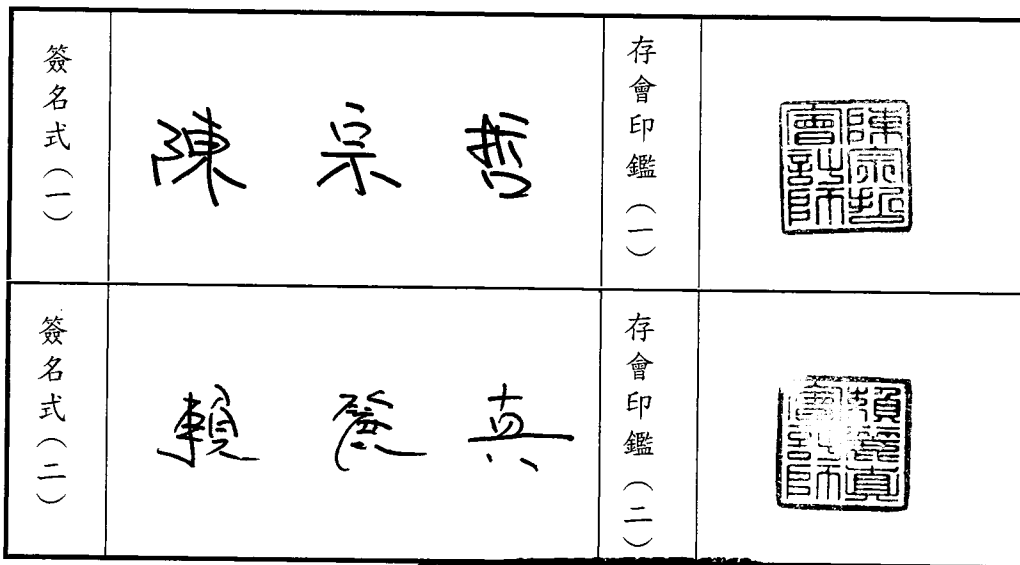 簽名式（一）
陳宗哲
存會印鑑（一）
陳宗哲
會計師
簽名式（二）
賴麗真
存會印鑑（二）
賴麗真
會計師